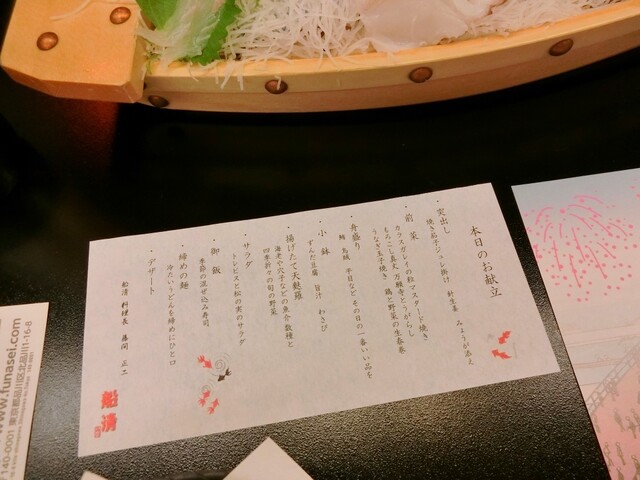 本日のお献立
・突出し
焼き茄子ジュレ掛け 針生姜 みょうが添え
・前菜
カラスガレイの杉マスタード焼き
もろこし真丈 万願寺とうがらし
うなぎ玉子焼き 鶏と野菜の生春巻
・舟盛り
鯛 烏賊 平目など その日の一番いい品を
・小鉢
ずんだ豆腐 旨汁 わさび
・揚げたて天麩羅
海老や穴子などの魚介数種と
四季折々の旬の野菜
・サラダ
トレビスと松の実のサラダ
・御飯
季節の混ぜ込み寿司
・締めの麺
冷たいうどんを締めにひと口
・デザート
船清 料理長 藤間 正二
船清
www.funasei.com
140-0001 東京都品川区北品川1-16-8